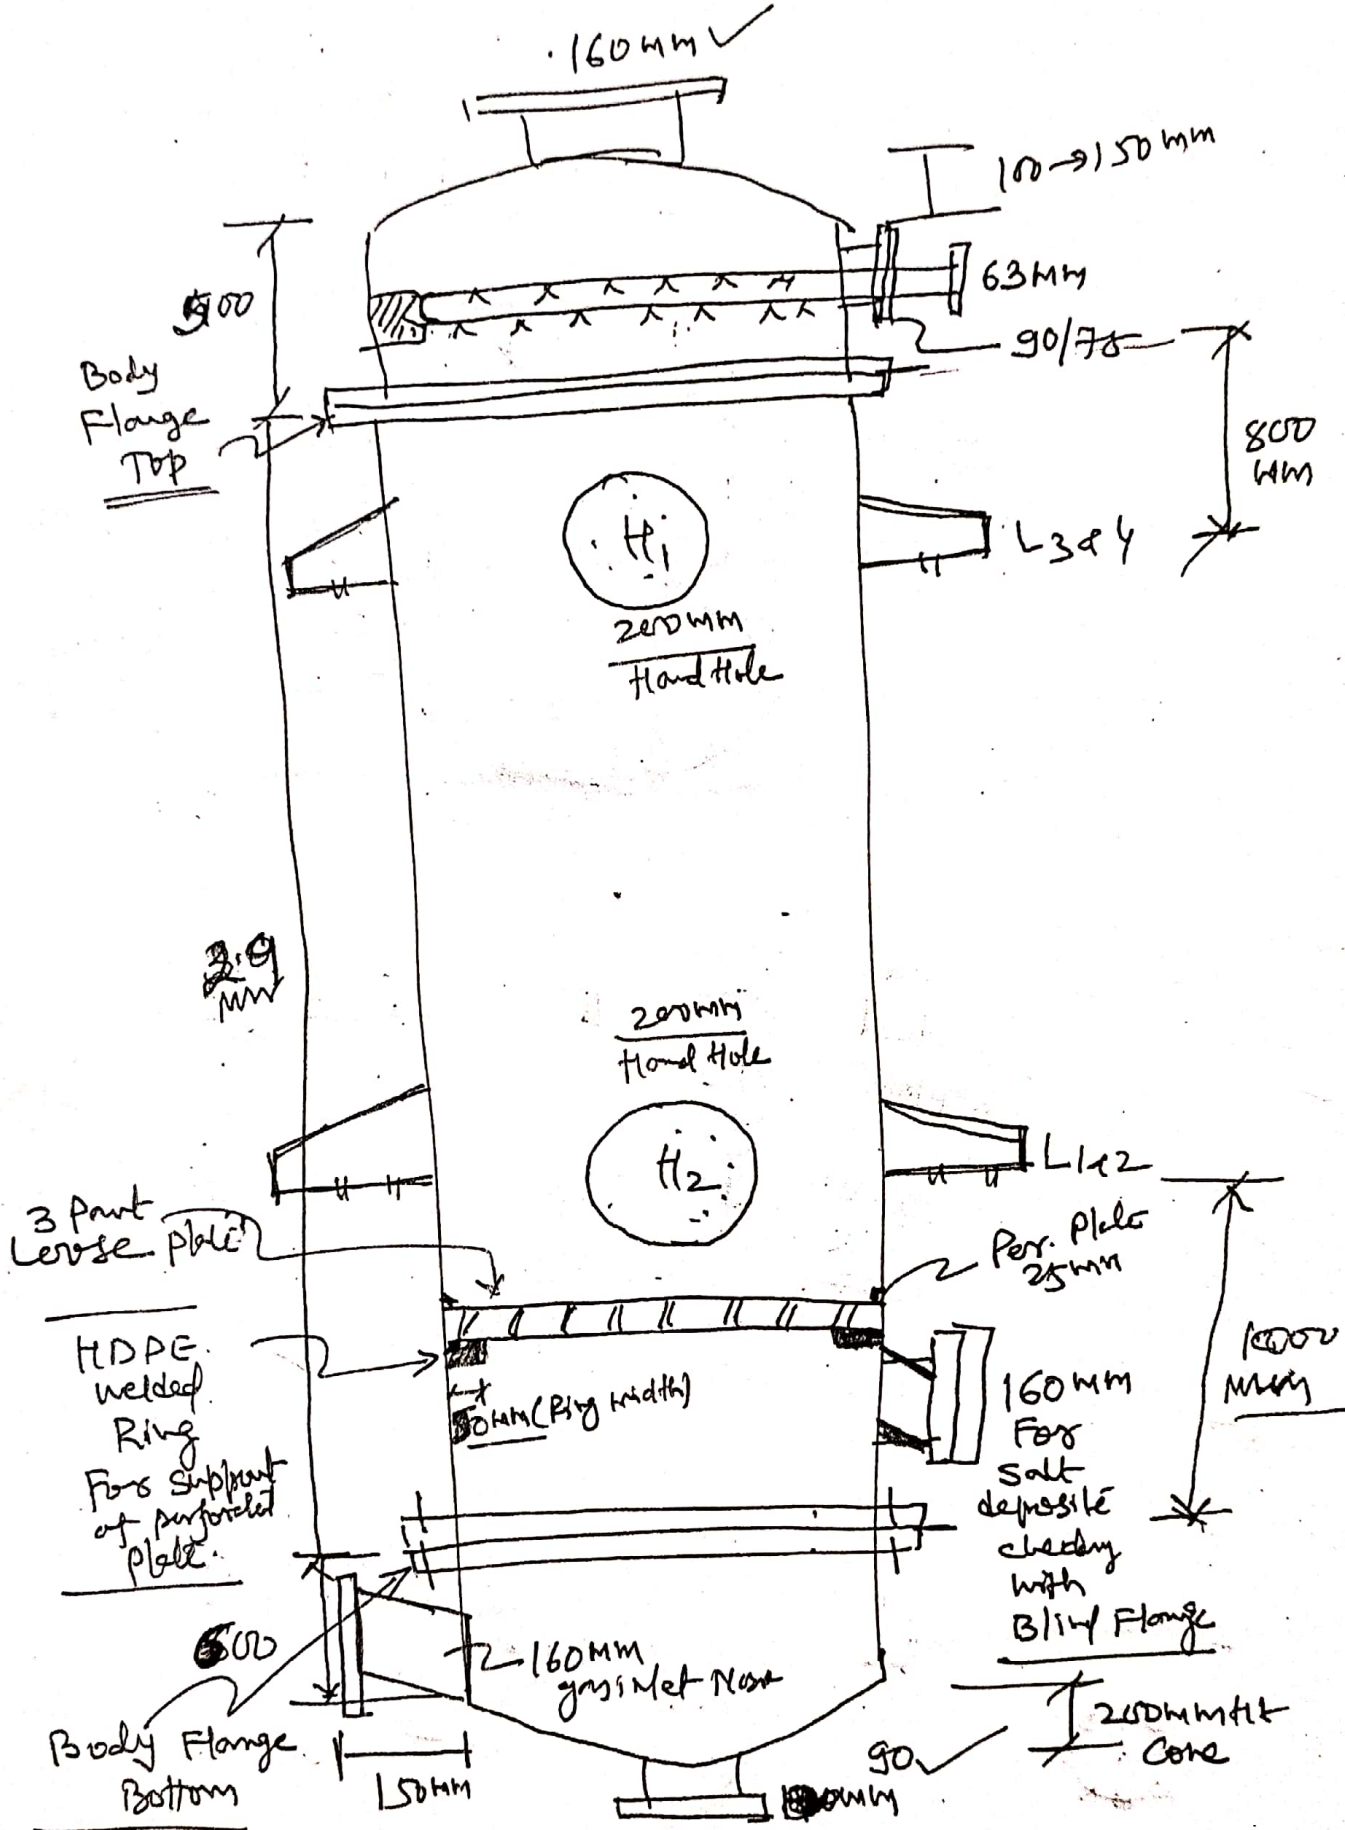 160mm
100→150mm
63mm
500
90/75
Body
Flange
Top
800
mm
H1
L3&4
200mm
Hand Hole
3.0
mm
200mm
Hand Hole
H2
L1&2
3 Part
Loose plate
Per. Plate
25mm
HDPE
welded
Ring
For support
of perforated
plate.
50mm (Ring width)
160mm
For
salt
deposite
checking
with
Blind Flange
1000
mm
600
160mm
gas inlet Nose
Body Flange
Bottom
150mm
90
200mm Ht
Cone